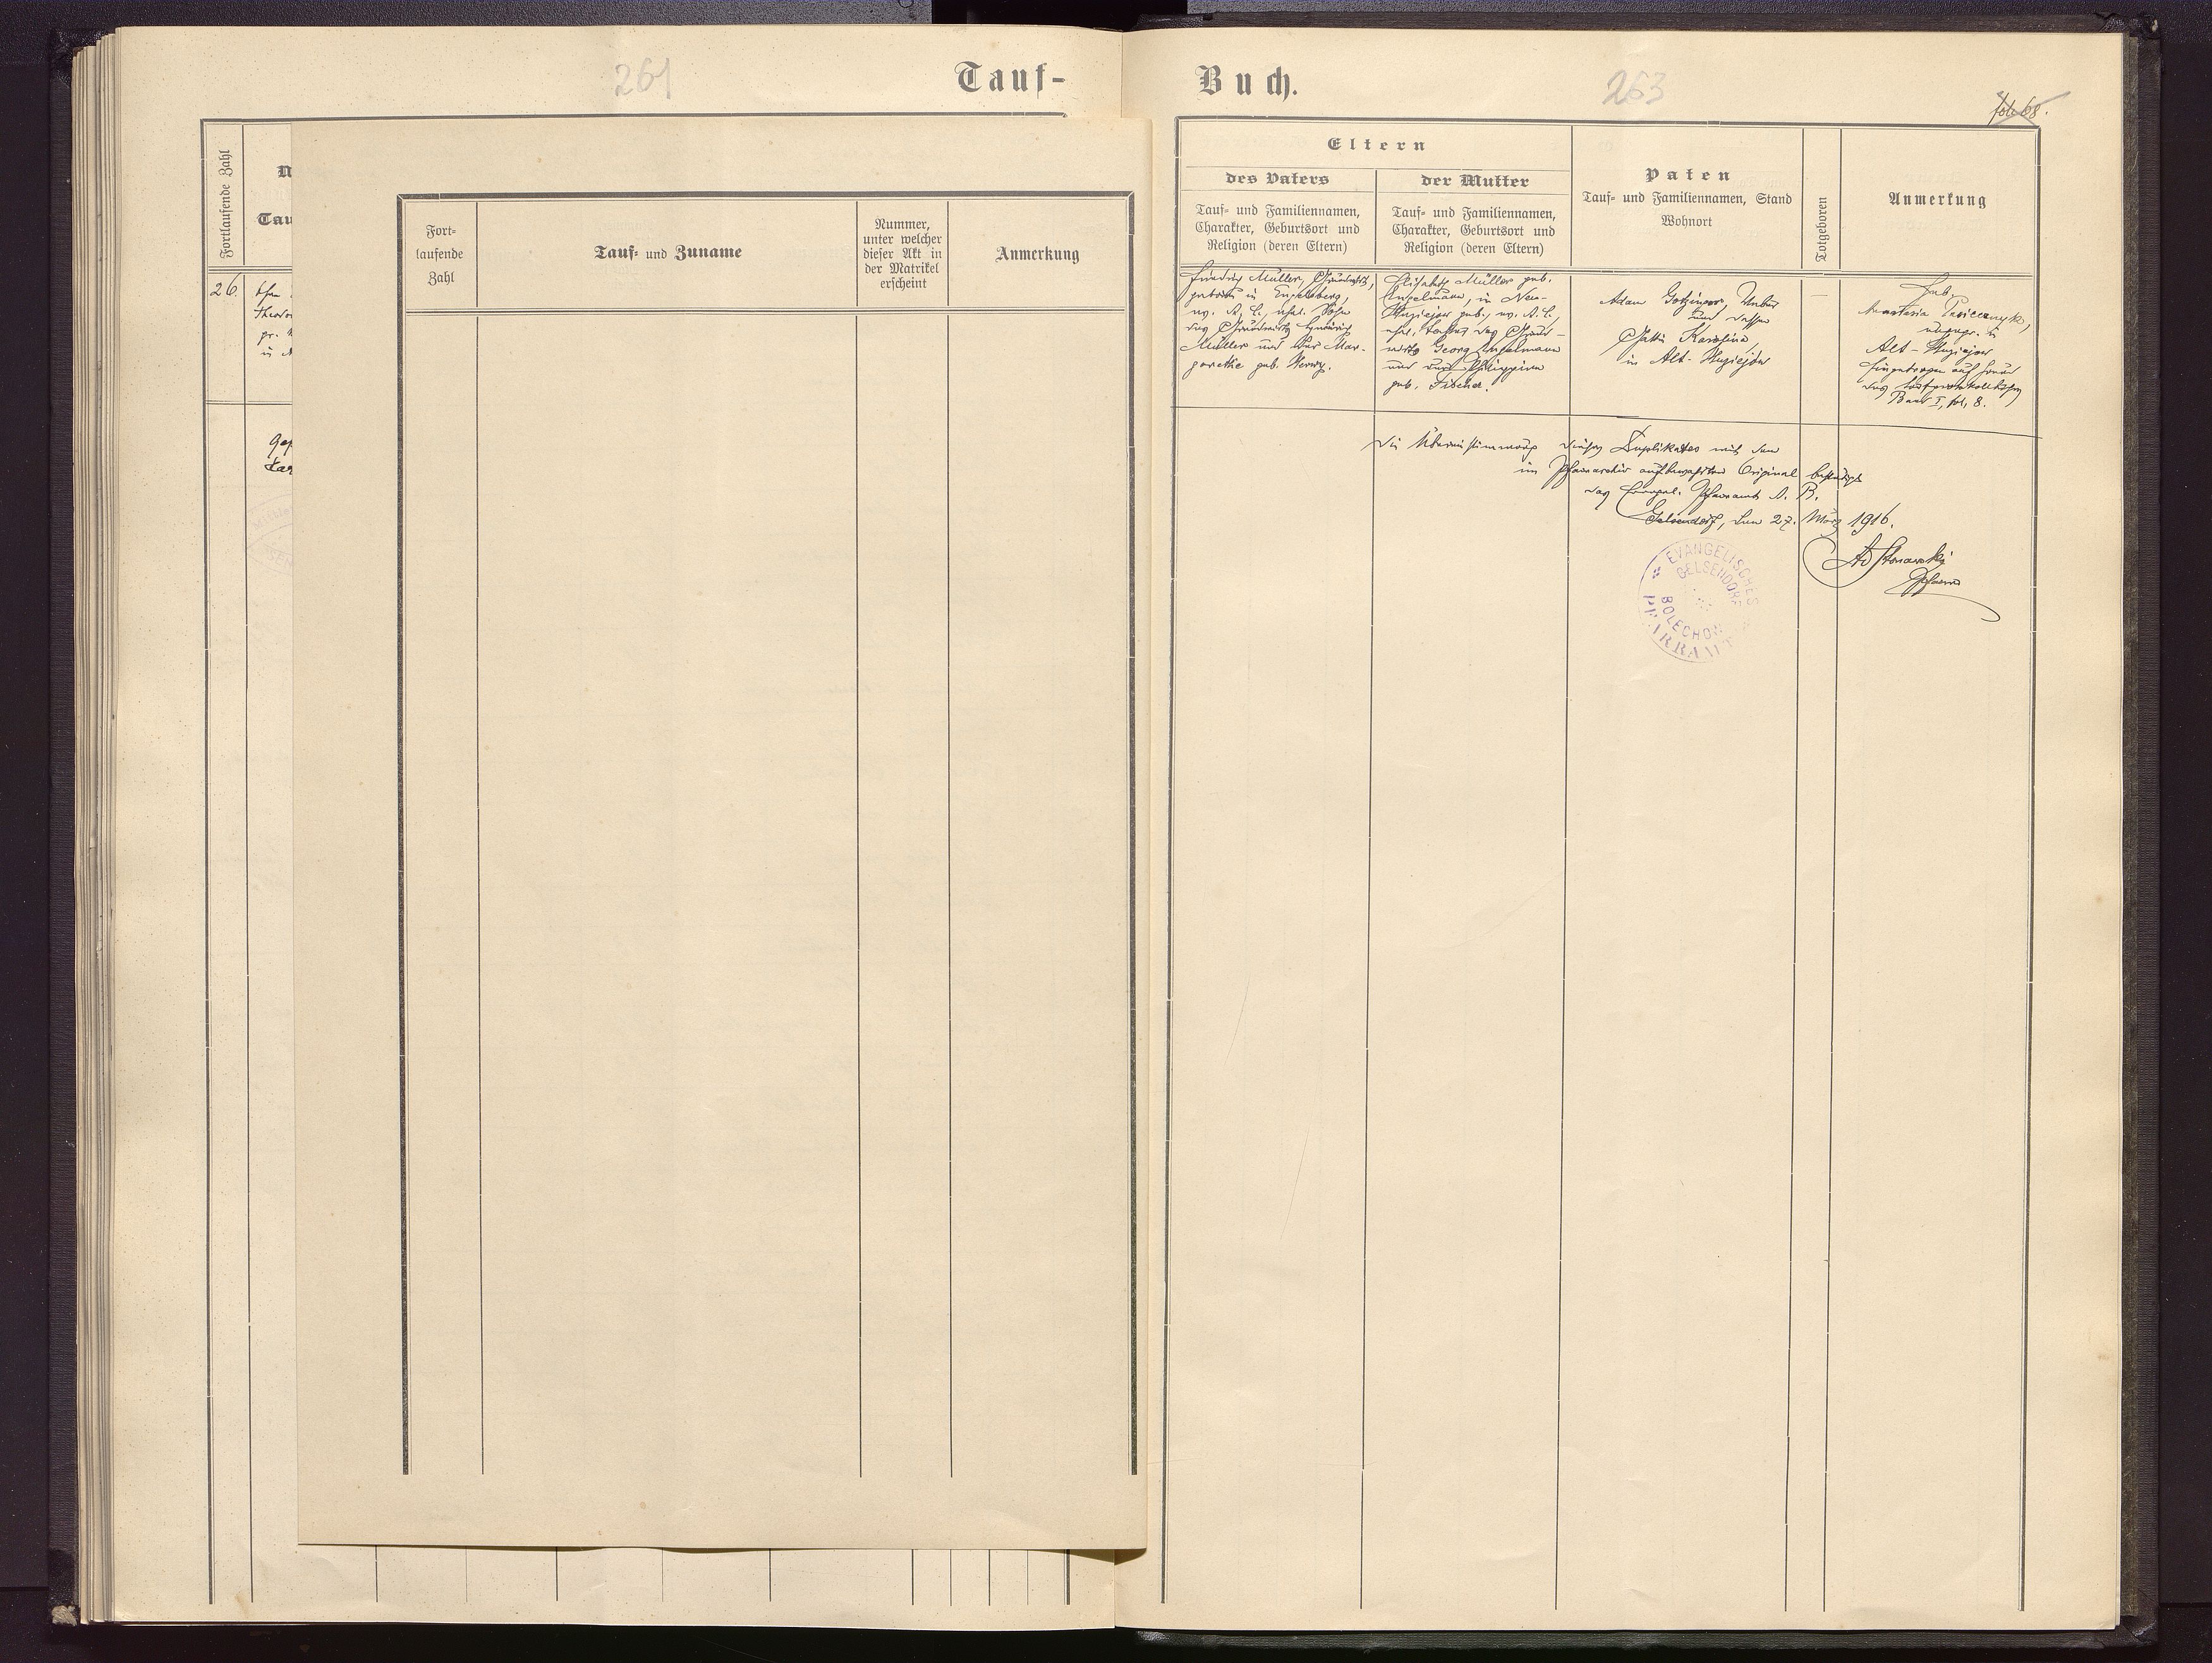 261
Tauf-
Fortlaufende Zahl
Tau
26.
Fort-
laufende
Zahl
Tauf- und Zuname
Nummer,
unter welcher
dieser Akt in
der Matrikel
erscheint
Anmerkung
Buch.
263
fol. 68.
Eltern
des Vaters
Tauf- und Familiennamen,
Charakter, Geburtsort und
Religion (deren Eltern)
der Mutter
Tauf- und Familiennamen,
Charakter, Geburtsort und
Religion (deren Eltern)
Paten
Tauf- und Familiennamen, Stand
Wohnort
Totgeboren
Anmerkung
Müller, Grundwirth,
geboren in Engelsberg,
ev. A. C., ehel. Sohn
des Grundwirths Heinrich
Müller und der Mar-
garethe geb.
Elisabeth Müller geb.
Engelmann, in Neu-
geb., ev. A. C.,
ehel. Tochter des Grund-
wirths Georg Engelmann
und der Philippine
geb.
Adam Weber
und dessen
Gattin Karolina
in Alt-
—
Heb.
Anastasia
ungepr. in
Alt-
Eingetragen auf Grund
des
Band I, fol. 8.
Die Übereinstimmung dieses Duplikates mit dem
im Pfarrarchiv aufbewahrten Original bestätigt
das Evangel. Pfarramt A. B.
Gelsendorf, den 27. März 1916.
Pfarrer
EVANGELISCHES
PFARRAMT
GELSENDORF
BOLECHOW